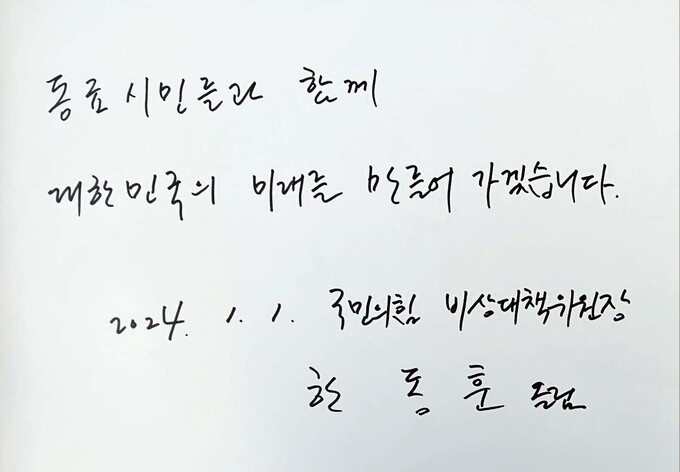 동료시민들과 함께
대한민국의 미래를 만들어 가겠습니다.
2024. 1. 1. 국민의힘 비상대책위원장
한 동 훈 드림